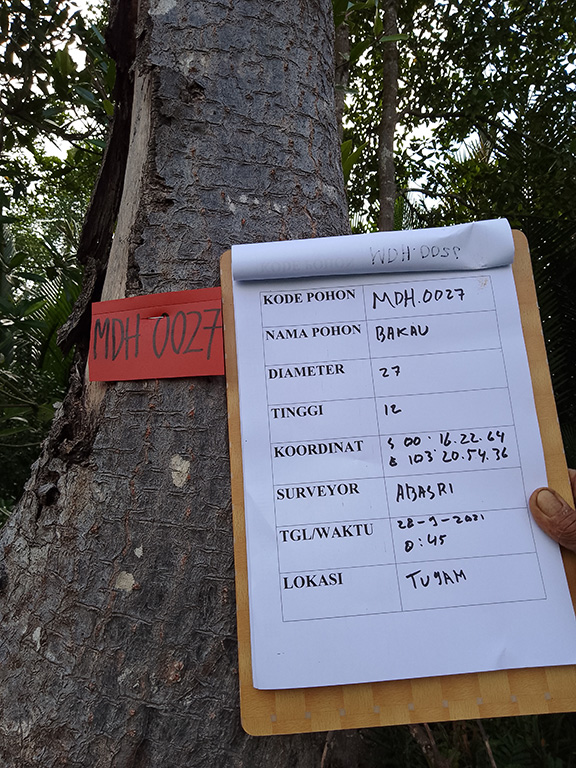 MDH 0027
KODE POHON MDH.0027
NAMA POHON BAKAU
DIAMETER 27
TINGGI 12
KOORDINAT S 00. 16.22.64
E 103 20.54.36
SURVEYOR ABASRI
TGL/WAKTU 28-9-2021
0:45
LOKASI TUJAM